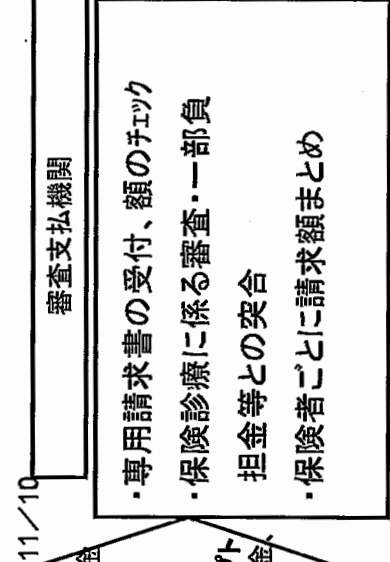 11/10
審査支払機関
・専用請求書の受付、額のチェック
・保険診療に係る審査・一部負
担金等との突合
・保険者ごとに請求額まとめ
金
ト
金、